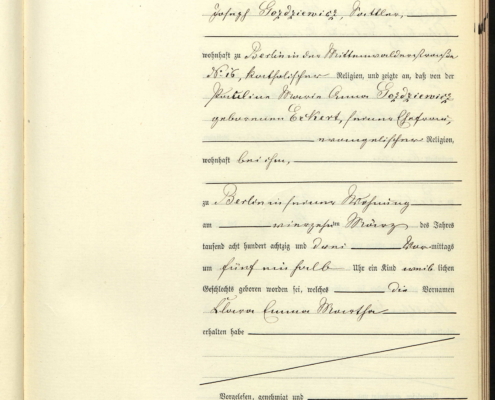 Joseph Gozdziewicz, Sattler,
wohnhaft zu Berlin in der Mittenwalderstraße
katholischer Religion, und zeigte an, daß von der
Pauline Marie Anna Gozdziewicz
geborenen Eckert, seiner Ehefrau,
evangelischer Religion,
wohnhaft bei ihm,
zu Berlin in seiner Wohnung
am vierzehn März des Jahres
tausend acht hundert achtzig und drei Vormittags
um fünf ein halb Uhr ein Kind weiblichen
Geschlechts geboren worden sei, welches die Vornamen
Clara Emma Martha
erhalten habe
Vorgelesen, genehmigt und